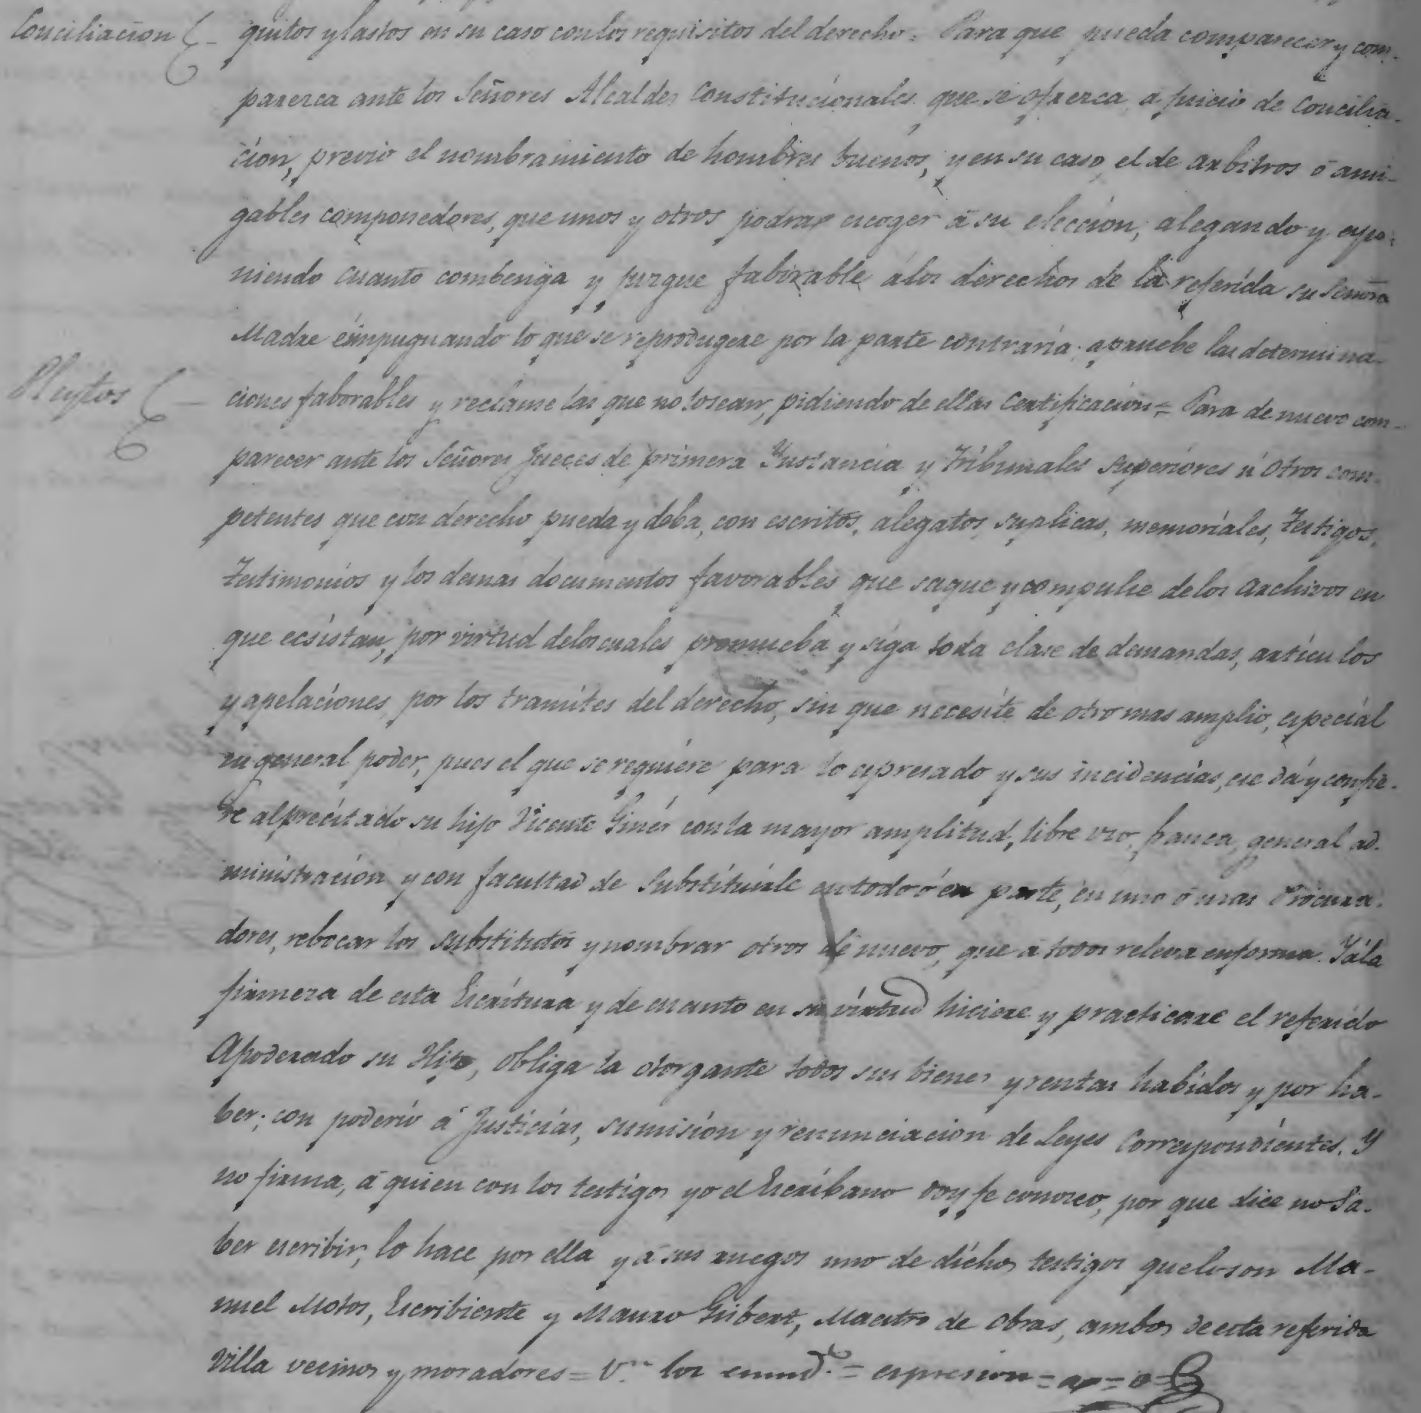 Conciliacion
quitos y lastos en su caso con los requisitos del derecho = Para que pueda comparecer y com-
parezca ante los Señores Alcaldes Constitucionales que se ofrezca, a juicio de Concilia-
cion, previo el nombramiento de hombres buenos, y en su caso el de arbitros ó ami-
gables componedores, que unos y otros podrar escoger á su elección, alegando y espo-
niendo cuanto combenga y juzgue faborable á los derechos de la referida su Señora
Madre é impugnando lo que se reprodugere por la parte contraria; apruebe las determina-
Pleytos
ciones faborables y reclame las que no lo sean, pidiendo de ellas Certificación = Para de nuevo com-
parecer ante los Señores Jueces de primera Ynstancia y Tribunales superiores ú otros com-
petentes que con derecho pueda y deba, con escritos, alegatos, suplicas, memoriales, testigos,
testimonios y los demas documentos favorables que saque y compulse de los Archivos en
que ecsistan, por virtud de los cuales promueba y siga toda clase de demandas, articulos
y apelaciones por los tramites del derecho, sin que necesite de otro mas amplio, especial
ni general poder, pues el que se requiere para lo espresado y sus incidencias, ese dá y confie-
re al precitado su hijo Vicente Ginér con la mayor amplitud, libre uso, franca, general ad-
ministración y con facultad de substituirle en todo ó en parte, en uno ó mas Procura-
dores, rebocar los substitutos y nombrar otros de nuevo, que á todos releva en forma. Y á la
firmeza de esta Escritura y de cuanto en su virtud hiciere y practicare el referido
Apoderado su Hijo, obliga la otorgante todos sus bienes y rentas habidos y por ha-
ber; con poderio á Justicias, sumisión y renunciacion de Leyes Correspondientes. Y
no firma, á quien con los testigos yo el Escribano doy fe conozco, por que dice no Sa-
ber escribir, lo hace por ella y á sus ruegos uno de dichos testigos que lo son Ma-
nuel Motos, Escribiente y Mauro Gisbert, Maestro de Obras, ambos de esta referida
Villa vecinos y moradores = V.n los enmd.s = espresion =